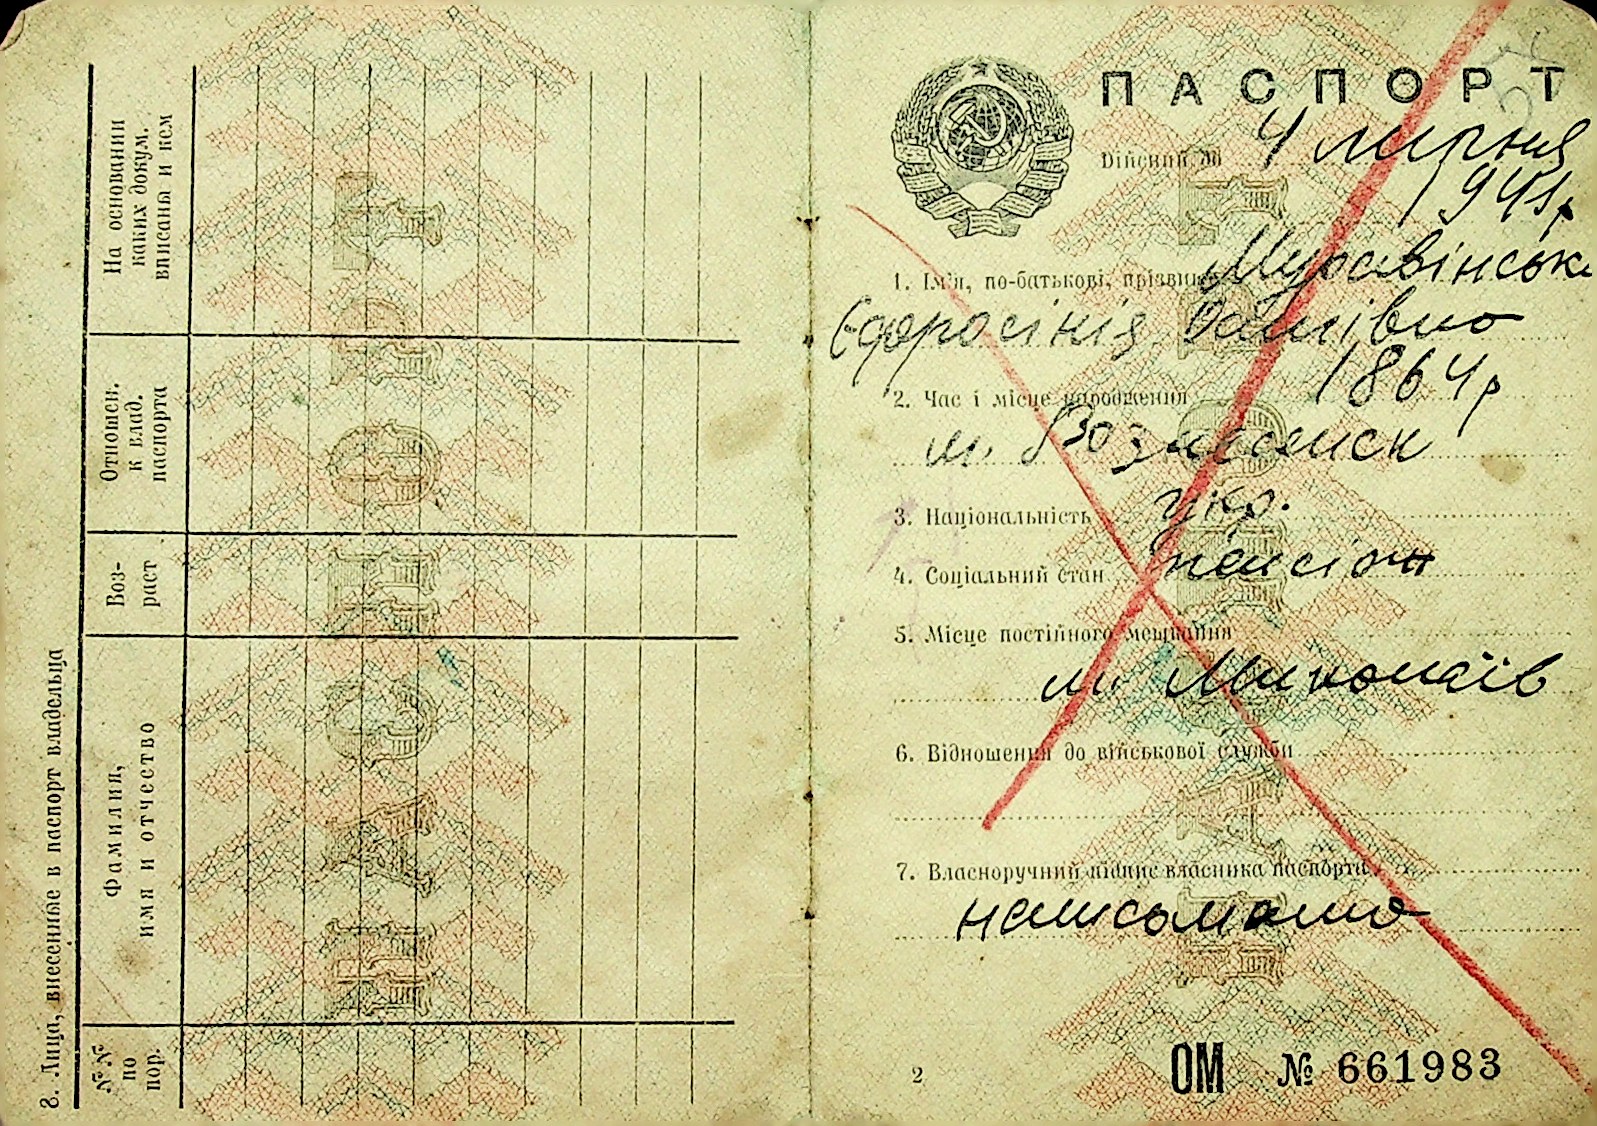 8. Лица, внесенные в паспорт владельца
На основании
каких докум.
вписаны и кем
Отношен.
к влад.
паспорта
Воз-
раст
Фамилия,
имя и отчество
№№
по
пор.
ПАСПОРТ
ПАСПОРТ
Дійсний до 4 липня
1941р
1. Ім'я, по-батькові, прізвище Муравінська
Єфросінія Данілівна
2. Час і місце народження 1864р
м. Вознесенск
3. Національність укр.
4. Соціальний стан пенсіон
5. Місце постійного мешкання
м. Миколаїв
6. Відношення до військової служби
7. Власноручний підпис власника паспорта
неписьменна
2
ОМ № 661983